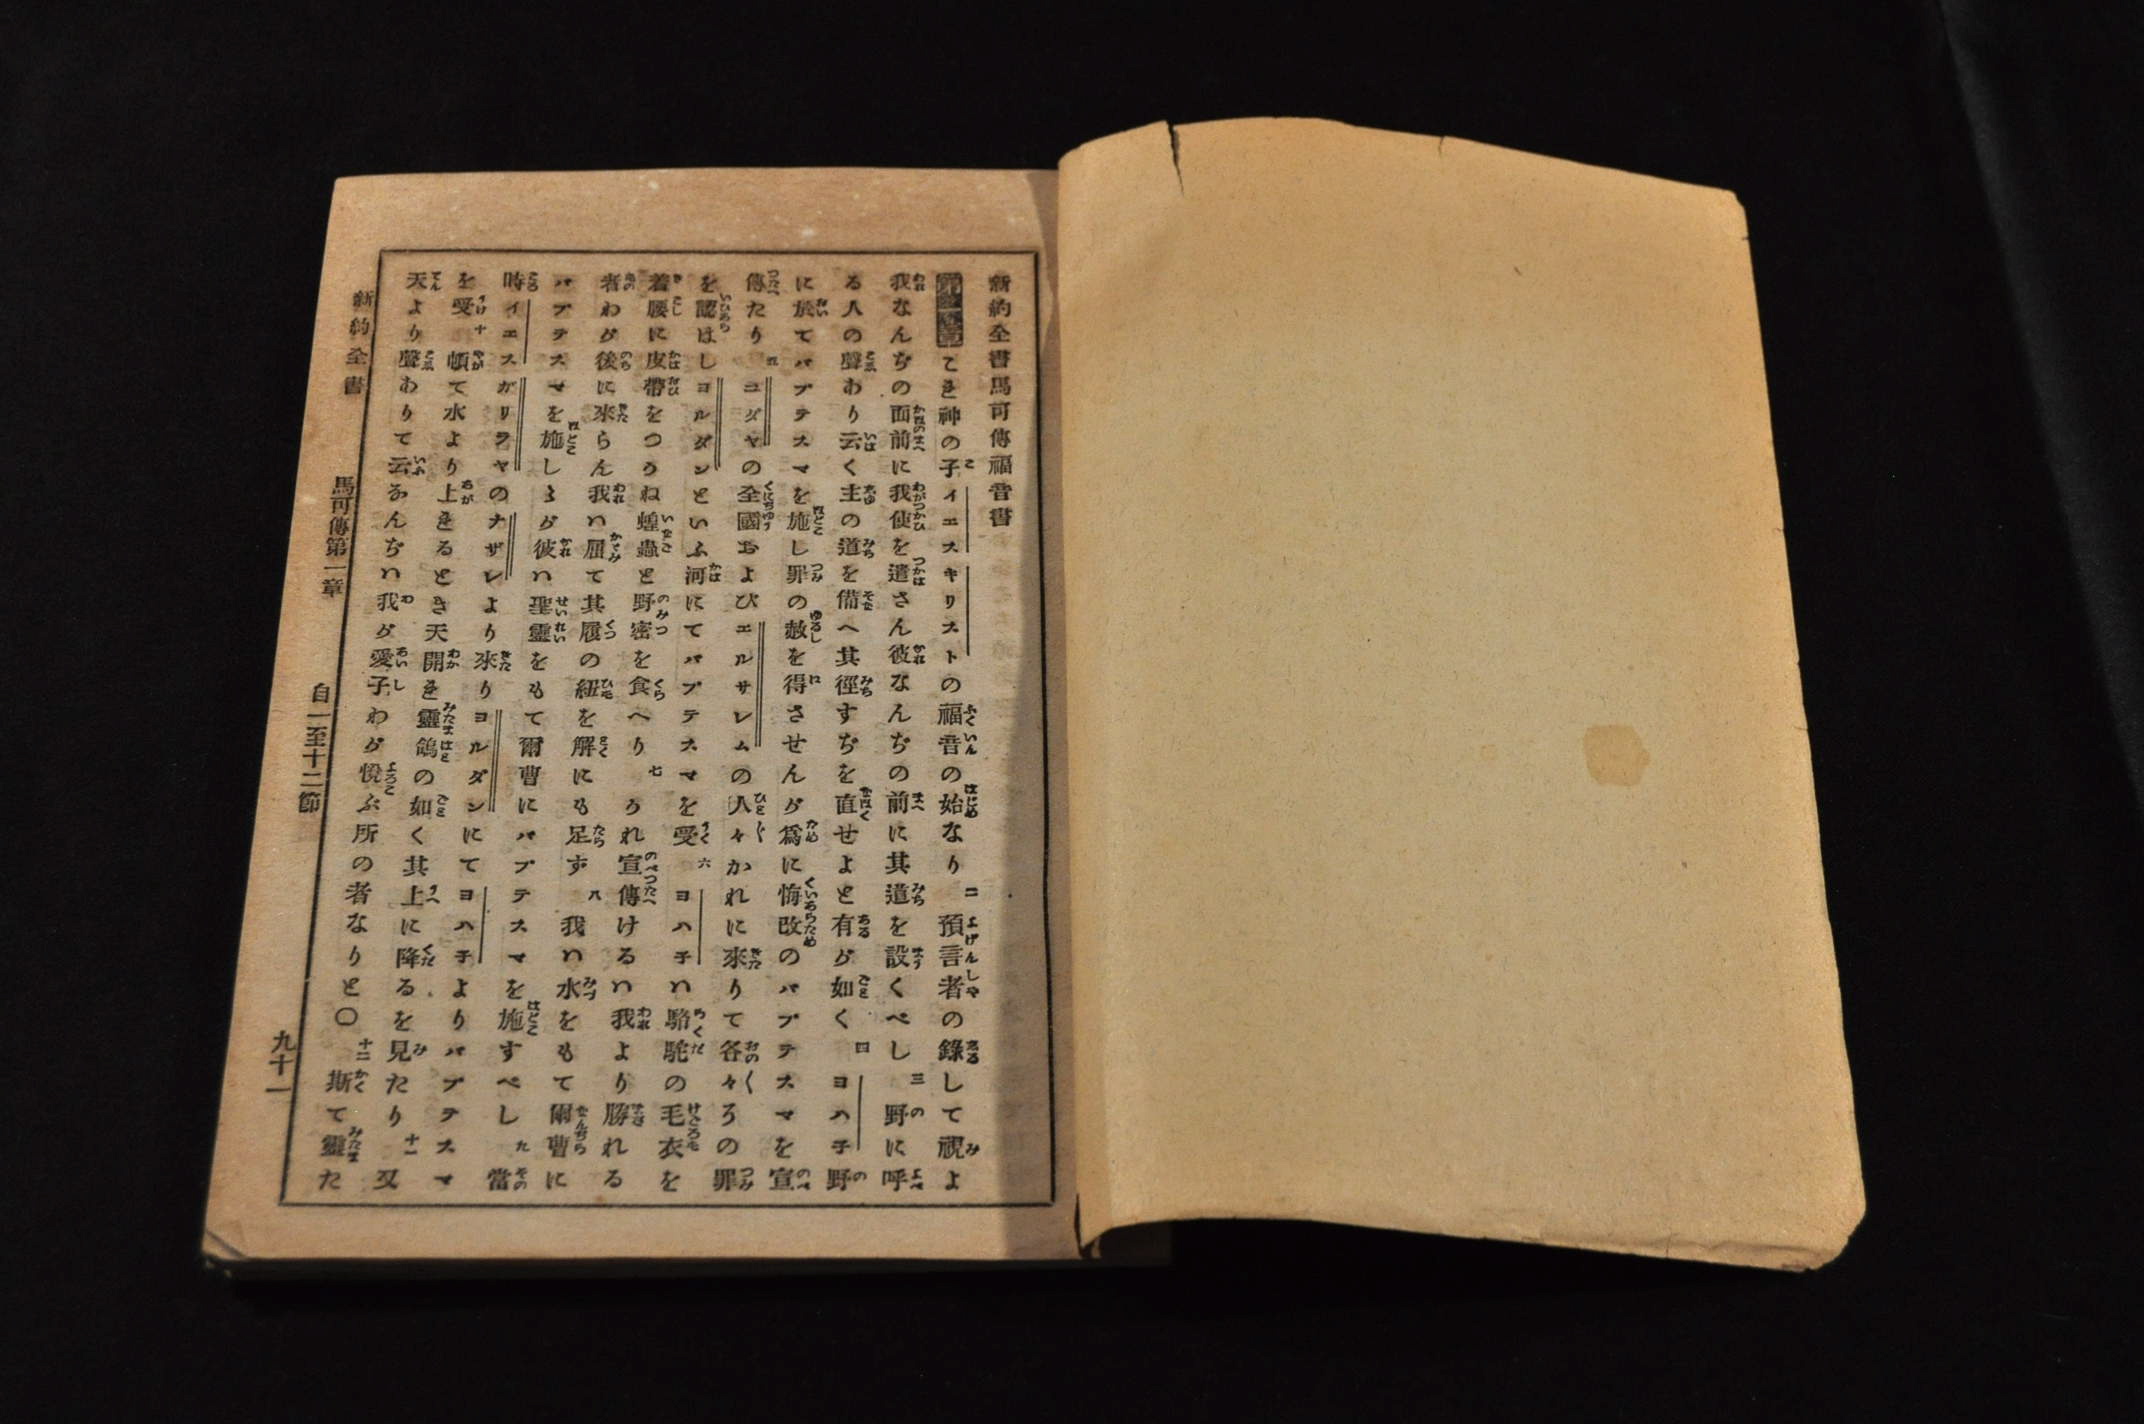 新約全書馬可傳福音書
第一章これ神の子イエスキリストの福音の始なり 二 預言者の錄して視よ
我なんぢの面前に我使を遣さん彼なんぢの前に其道を設くべし 三 野に呼
る人の聲あり云く主の道を備へ其徑すぢを直せよと有が如く 四 ヨハ子野
に於てバプテスマを施し罪の赦を得させんが爲に悔改のバプテスマを宣
傳たり 五 ユダヤの全國およびエルサレムの人々かれに來りて各々その罪
を認はしヨルダンといふ河にてバプテスマを受 六 ヨハ子ハ駱駝の毛衣を
着腰に皮帶をつかね蝗蟲と野密を食へり 七 かれ宣傳けるハ我より勝れる
者わが後に來らん我ハ屈て其履の紐を解にも足ず 八 我ハ水をもて爾曹に
バプテスマを施しゝが彼ハ聖靈をもて爾曹にバプテスマを施すべし 九 當
時イエスガリラヤのナザレより來りヨルダンにてヨハ子よりバプテスマ
を受 十 頓て水より上れるとき天開き靈鴿の如く其上に降るを見たり 十一 又
天より聲ありて云なんぢハ我が愛子わが悅ぶ所の者なりと〇 十二 斯て靈た
新約全書 馬可傳第一章 自一至十二節 九十一